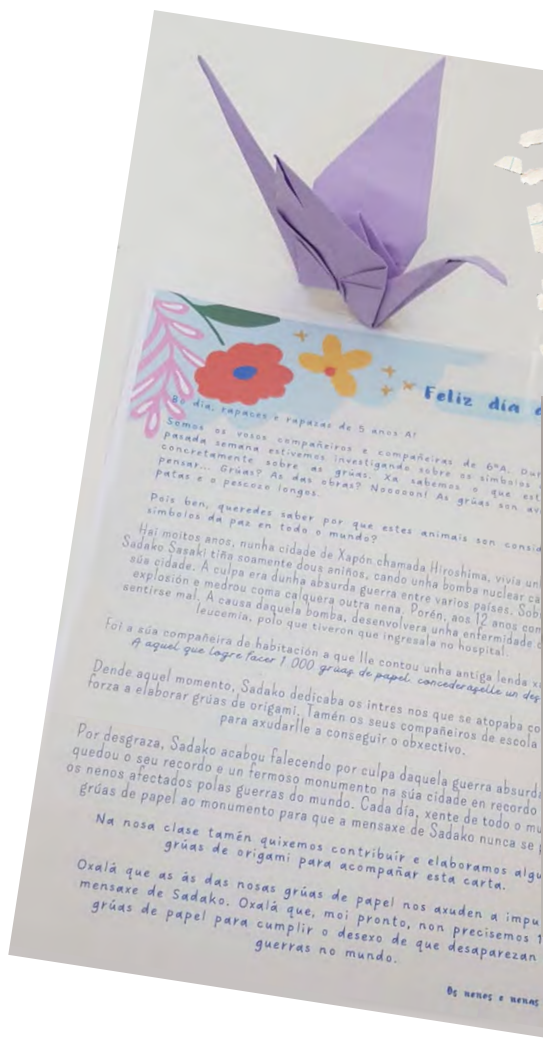 Feliz día
Bo día, rapaces e rapazas de 5 anos A!
Somos os vosos compañeiros e compañeiras de 6ºA. Dur
pasada semana estivemos investigando sobre os símbolos
concretamente sobre as grúas. Xa sabemos o que est
pensar... Grúas? As das obras? Nooooon! As grúas son av
patas e o pescozo longos.
Pois ben, queredes saber por que estes animais son consid
símbolos da paz en todo o mundo?
Hai moitos anos, nunha cidade de Xapón chamada Hiroshima, vivía un
Sadako Sasaki tiña soamente dous aniños, cando unha bomba nuclear ca
súa cidade. A culpa era dunha absurda guerra entre varios países. Sob
explosión e medrou coma calquera outra nena. Porén, aos 12 anos com
sentirse mal. A causa daquela bomba, desenvolvera unha enfermidade c
leucemia, polo que tiveron que ingresala no hospital.
Foi a súa compañeira de habitación a que lle contou unha antiga lenda x
A aquel que logre facer 1.000 grúas de papel, concederáselle un des
Dende aquel momento, Sadako dedicaba os intres nos que se atopaba co
forza a elaborar grúas de origami. Tamén os seus compañeiros de escola
para axudarlle a conseguir o obxectivo.
Por desgraza, Sadako acabou falecendo por culpa daquela guerra absurda
quedou o seu recordo e un fermoso monumento na súa cidade en recordo
os nenos afectados polas guerras do mundo. Cada día, xente de todo o mu
grúas de papel ao monumento para que a mensaxe de Sadako nunca se
Na nosa clase tamén quixemos contribuír e elaboramos algu
grúas de origami para acompañar esta carta.
Oxalá que as ás das nosas grúas de papel nos axuden a impu
mensaxe de Sadako. Oxalá que, moi pronto, non precisemos 1
grúas de papel para cumplir o desexo de que desaparezan
guerras no mundo.
Os nenos e nenas